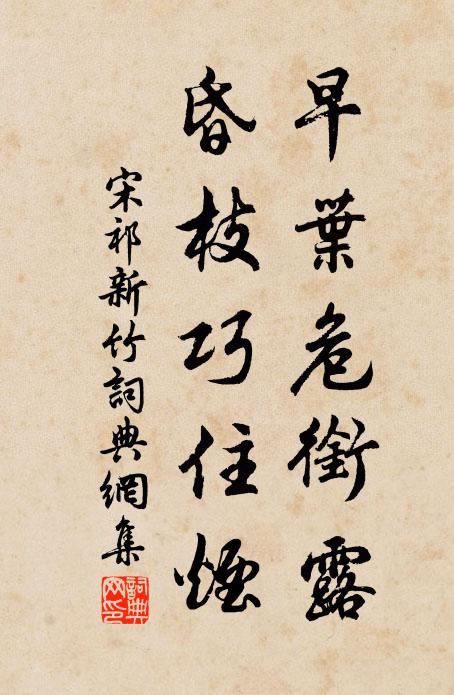 早葉危銜露
昏枝巧住煙
宋祁新竹詞典網集
詞典網印